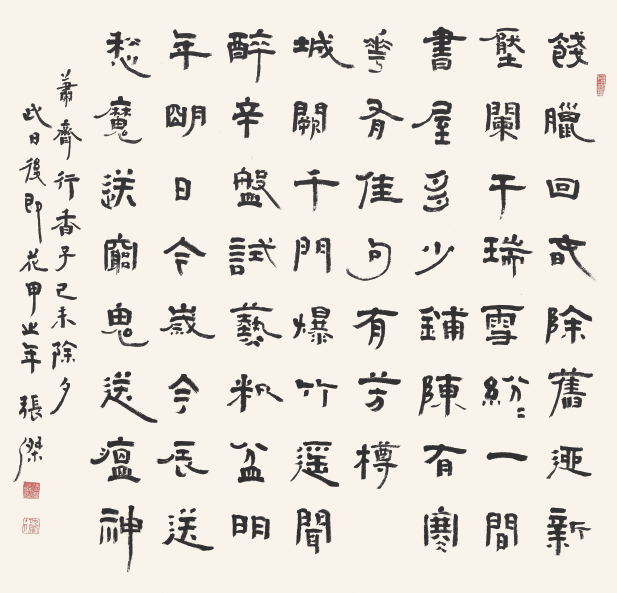 餞臘回春除舊迎新
壓闌干瑞雪紛〻一間
書屋多少鋪陳有寒
華有佳句有芳樽
城闕千門爆竹遥聞
醉辛盤試爇籸盆明
年明日今歲今辰送
愁魔送窮鬼送瘟神
蕭齋行香子己未除夕
此日後即花甲之年 張傑